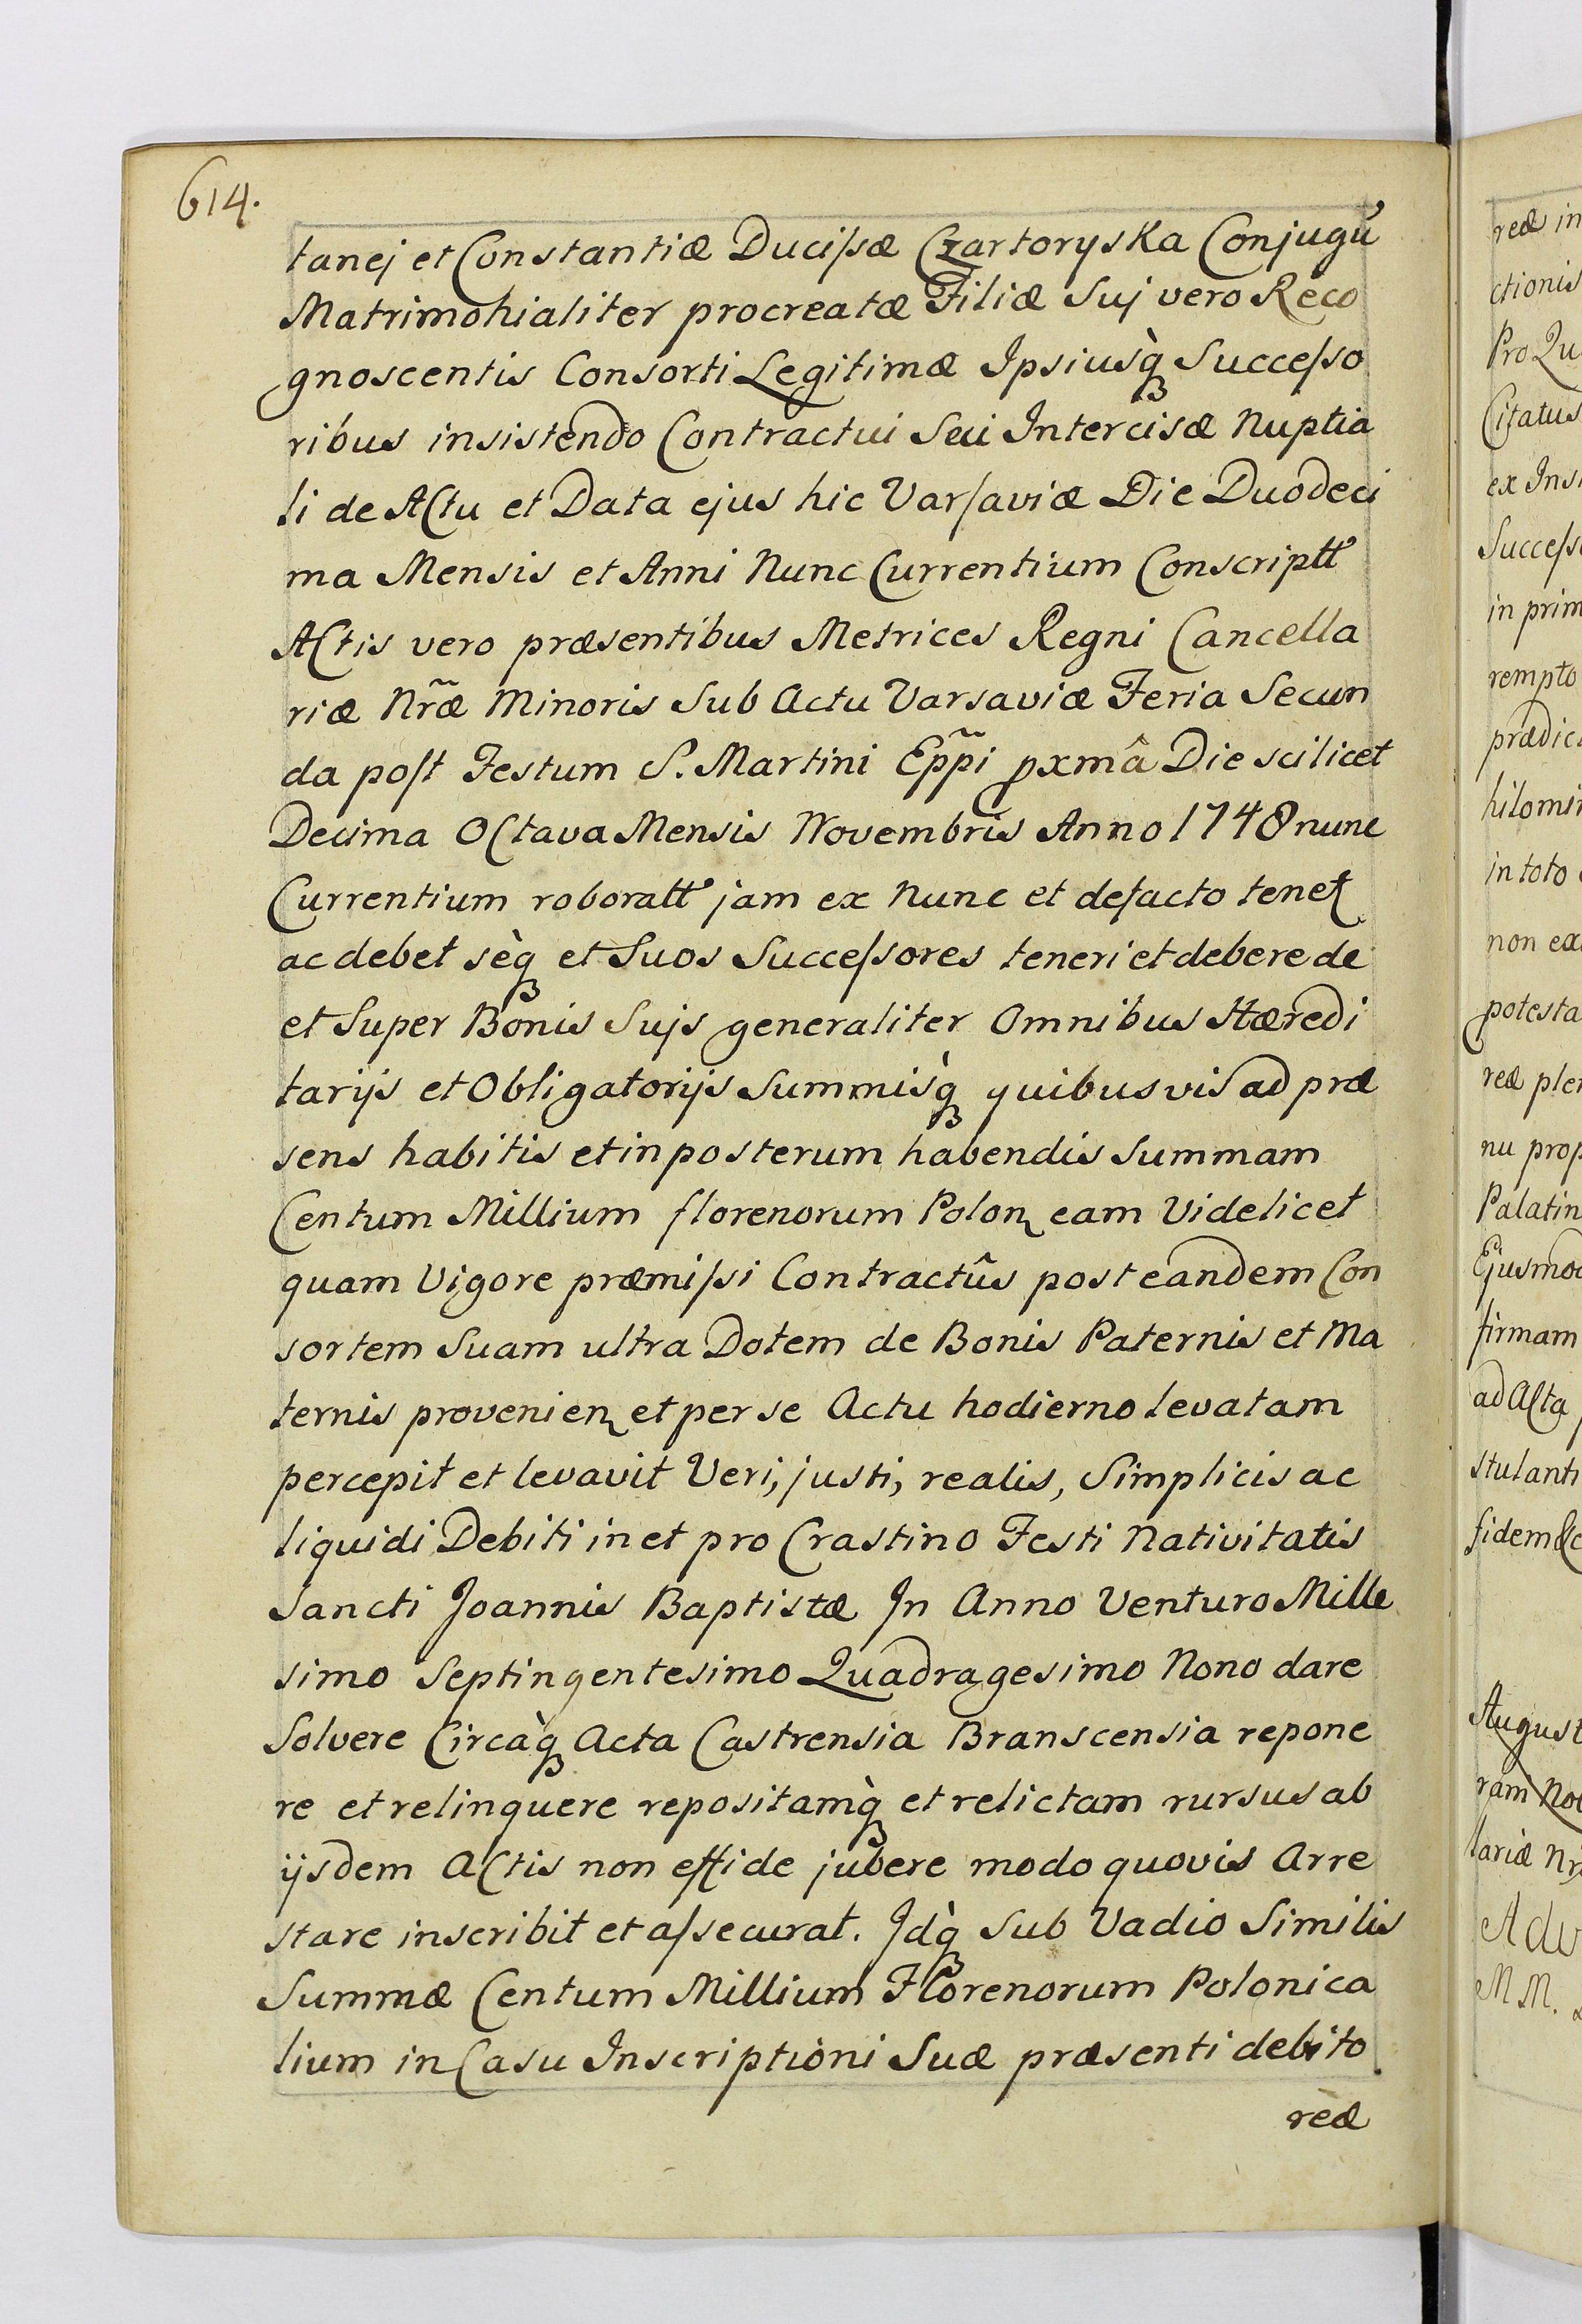 614.
tanej et Constantiæ Ducißæ Czartoryska Conjugũ
Matrimonialiter procreatæ Filiæ Suj vero Reco
gnoscentis Consorti Legitimæ Ipsiusq̀ Succeßo
ribus insistendo Contractui Seu Intercisæ Nuptia
li de Actu et Data ejus hic Varſaviæ Die Duodeci
ma Mensis et Anni Nunc Currentium Conscriptt
Actis vero præsentibus Metrices Regni Cancella
riæ Nr̃æ Minoris Sub Actu Varsaviæ Feria Secun
da poſt Festum S. Martini Epp̃i pxmâ Die scilicet
Decima Octava Mensis Novembris Anno 1748 nunc
Currentium roboratt jam ex Nunc et defacto tenet
ac debet sèq et Suos Succeßores teneri et debere de
et Super Bonis Sujs generaliter Omnibus Hæredi
tarijs et Obligatorijs Summisq̀ quibusvis ad præ
sens habitis et in posterum habendis Summam
Centum Millium florenorum Polon eam Videlicet
quam Vigore præmißi Contractûs post eandem Con
sortem Suam ultra Dotem de Bonis Paternis et Ma
ternis provenien et per se Actu hodierno levatam
percepit et levavit Veri, justi, realis, Simplicis ac
liquidi Debiti in et pro Crastino Festi Nativitatis
Sancti Joannis Baptistæ In Anno Venturo Mille
simo Septingentesimo Quadragesimo Nono dare
Solvere Circàq Acta Castrensia Branscensia repone
re et relinquere repositamq̀ et relictam rursus ab
ijsdem Actis non effide jubere modo quovis Arre
stare inscribit et aßecurat. Idq̀ Sub Vadio Similis
Summæ Centum Millium Florenorum Polonica
lium in Casu Inscriptioni Suæ præsenti debito
reæ
reæ in
ctionis
Pro Qu
Citatus
ex Ins
Succeß
in prim
rempto
prædic
hilomi
in toto
non ex
potesta
reæ ple
nu prop
Palatin
Ejusmod
firmam
ad Acta
stulanti
fidem &c
August
ram No
lariæ Nr
M M.